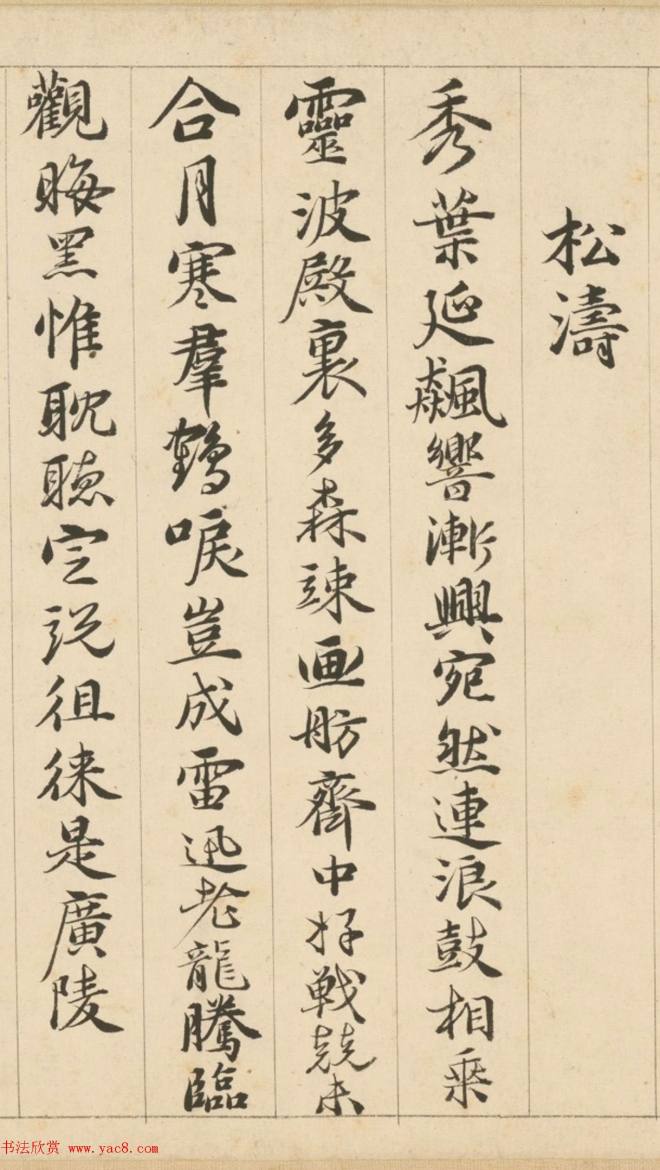 松濤
秀葉延飆響漸興宛然連浪鼓相乘
靈波殿裏多森竦画舫齋中好戰兢未
合月寒羣鶴唳豈成雷迅老龍騰臨
觀晦黑惟耽聽定説徂徠是廣陵
书法欣赏 www.yac8.com